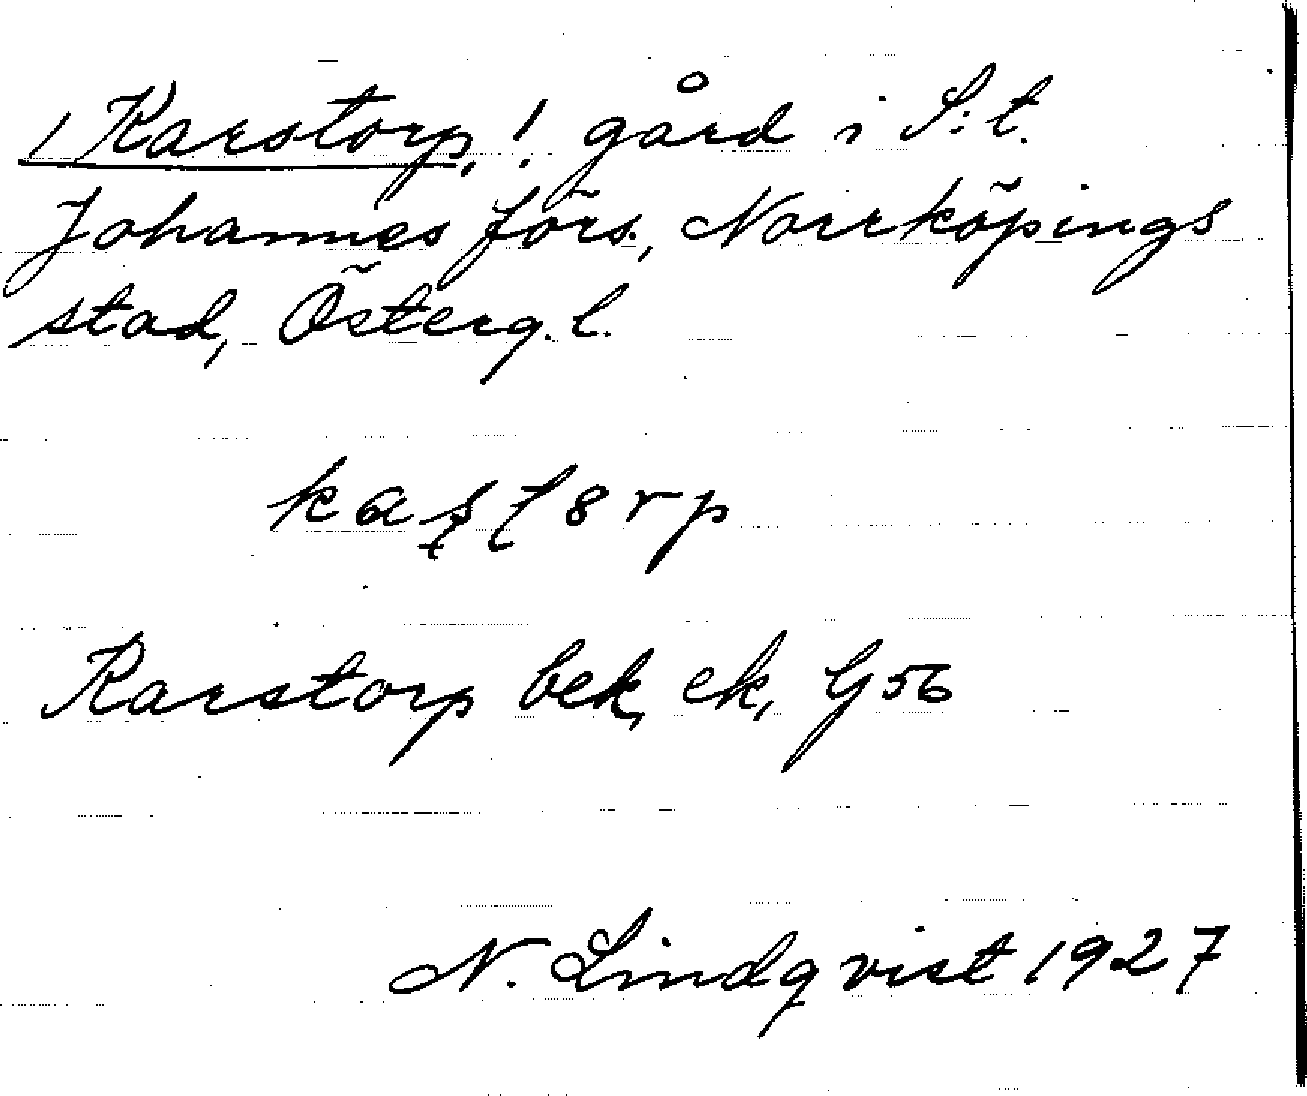 ! Karstorp, ! gård i S:t.
Johannes förs., Norrköpings
stad, Österg. l.
Karstorp bek, ek, G 56
N. Lindqvist 1927